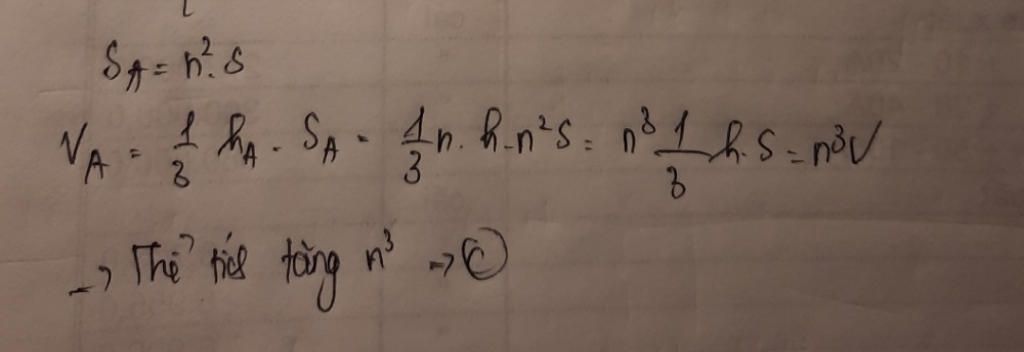 S_A = n². S
V_A = 1/3 h_A . S_A = 1/3 n. h. n² S = n³ 1/3 h. S = n³V
→ Thể tích tăng n³ → C